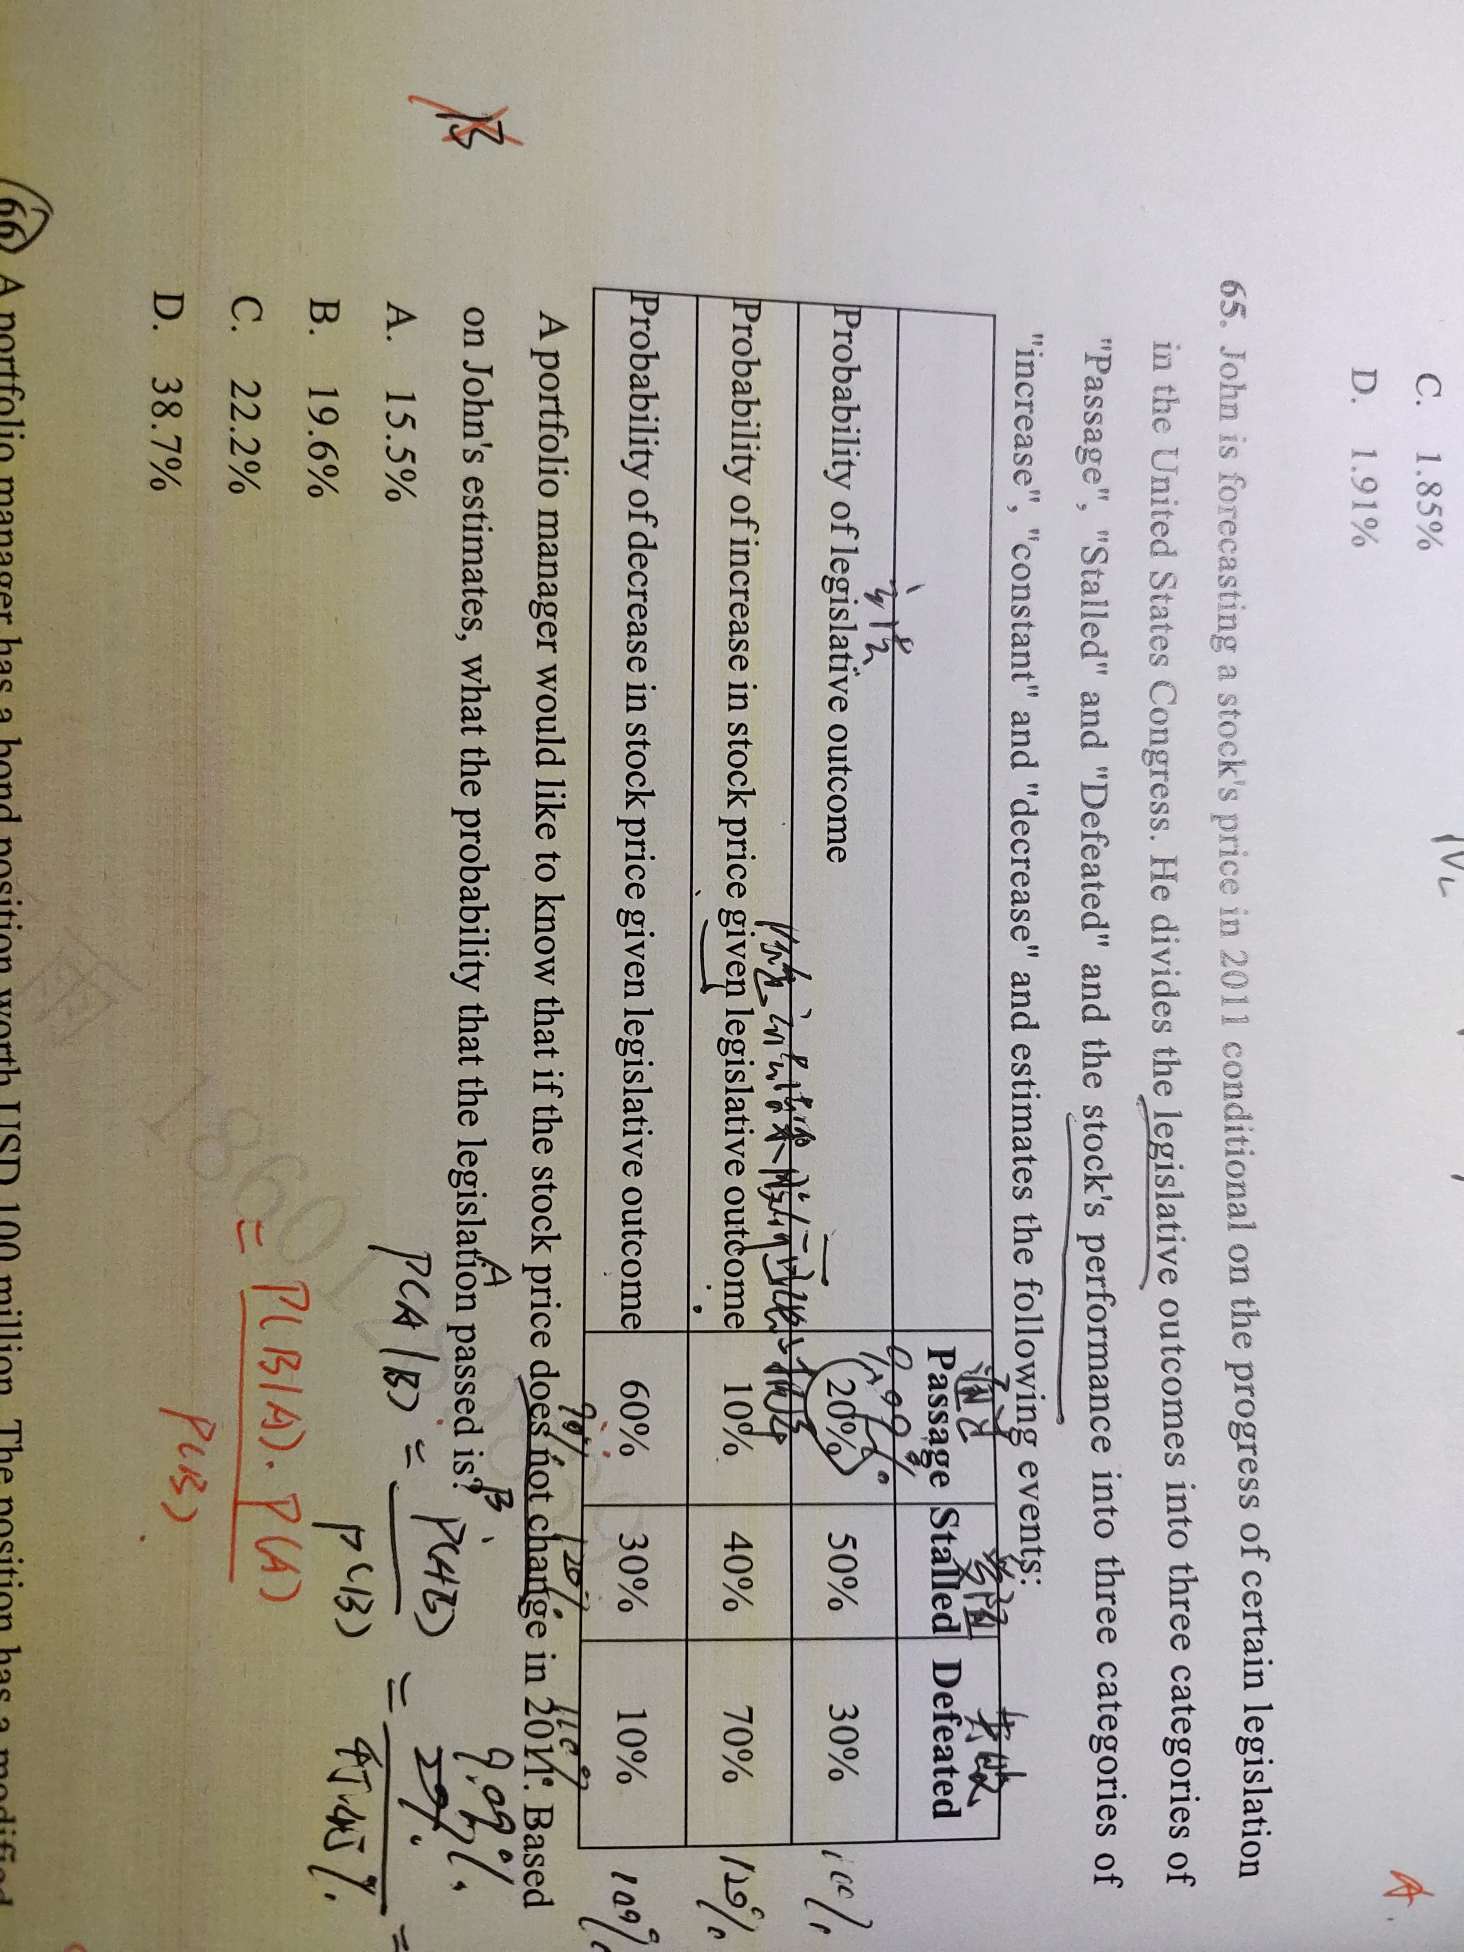 C. 1.85%
D. 1.91%
65. John is forecasting a stock's price in 2011 conditional on the progress of certain legislation
in the United States Congress. He divides the legislative outcomes into three categories of
"Passage", "Stalled" and "Defeated" and the stock's performance into three categories of
"increase", "constant" and "decrease" and estimates the following events:
通过 失败
Passage Stalled Defeated
Probability of legislative outcome 20% 50% 30%
Probability of increase in stock price given legislative outcome 10% 40% 70%
129%
Probability of decrease in stock price given legislative outcome 60% 30% 10%
109%
A portfolio manager would like to know that if the stock price does not change in 2011. Based
on John's estimates, what the probability that the legislation passed is?
A B
A. 15.5%
B. 19.6%
C. 22.2%
D. 38.7%
B
P(A|B) = P(AB) =
P(B)
= P(B|A)·P(A)
P(B)
66 A portfolio manager has a bond position worth USD 100 million. The position has a modified